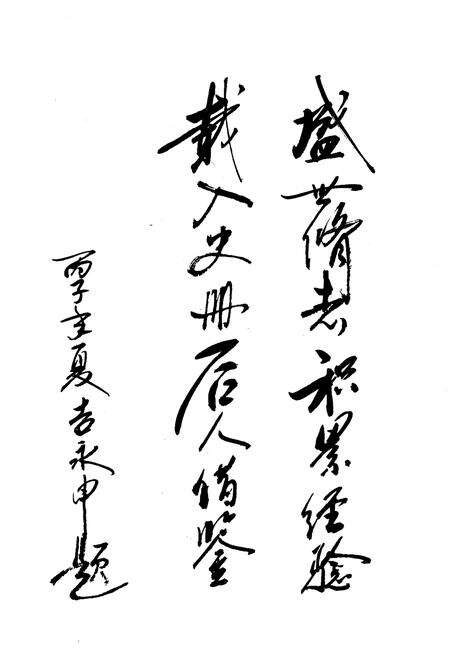 盛世修志积累经验
载入史册后人借鉴
丙子年夏吉永申题